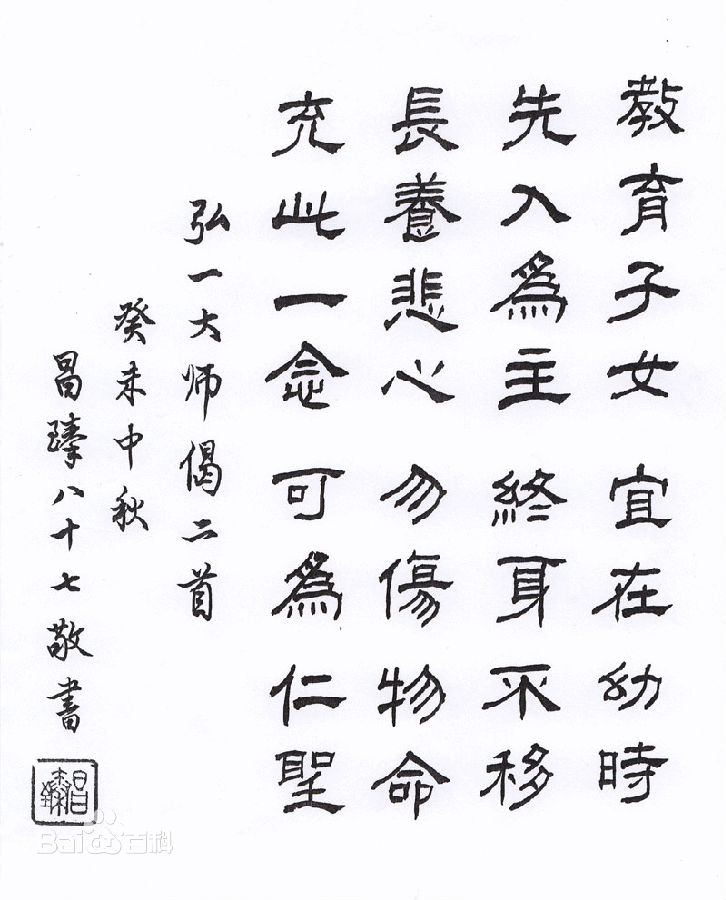 教育子女 宜在幼時
先入爲主 終身不移
長養悲心 勿傷物命
充此一念 可爲仁聖
弘一大师偈二首
癸未中秋
昌臻八十七敬書
昌臻
Bai百科